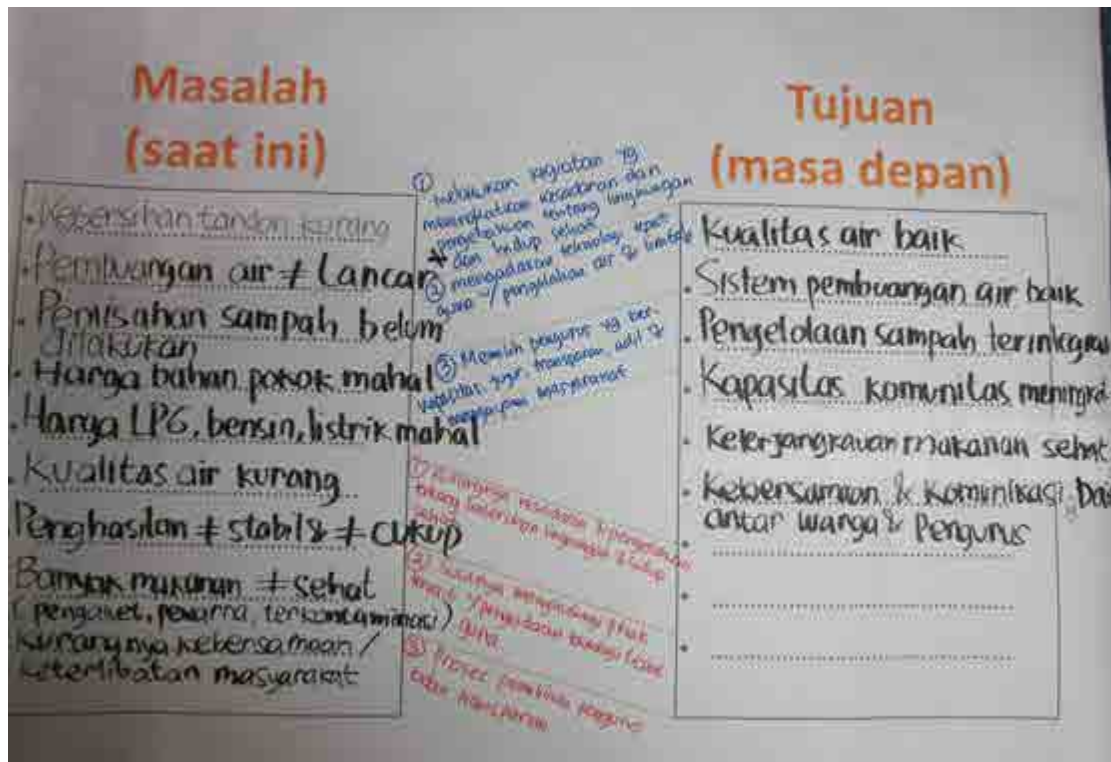 Masalah
(saat ini)
. Kebersihan tandon kurang
. Pembuangan air ≠ Lancar
. Pemisahan sampah belum
dilakukan
. Harga bahan pokok mahal
. Harga LPG, bensin, listrik mahal
. Kualitas air kurang
. Penghasilan ≠ stabil & ≠ cukup
Banyak makanan ≠ sehat
( pengawet, pewarna, terkontaminasi)
Kurangnya kebersamaan /
keterlibatan masyarakat
①
melakukan kegiatan yg
meningkatkan kesadaran dan
pengetahuan tentang lingkungan
dan hidup sehat
② mengadakan teknologi tepat
guna / pengolahan air & limbah
③ Memilih pengurus yg ber-
kapasitas, jujur, transparan, adil &
masyarakat
① Kurangnya kesadaran & pengetahuan
tentang lingkungan & hidup
sehat
②
guna
③ Proses pemilihan pengurus
transparan
Tujuan
(masa depan)
Kualitas air baik
. Sistem pembuangan air baik
. Pengelolaan sampah
. Kapasitas komunitas
. Keterjangkauan makanan sehat
. Kebersamaan & komunikasi
antar warga & Pengurus